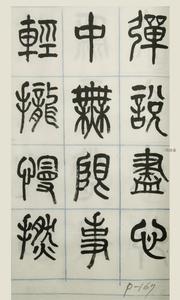 彈說盡心
中無限事
輕攏慢撚
p-167